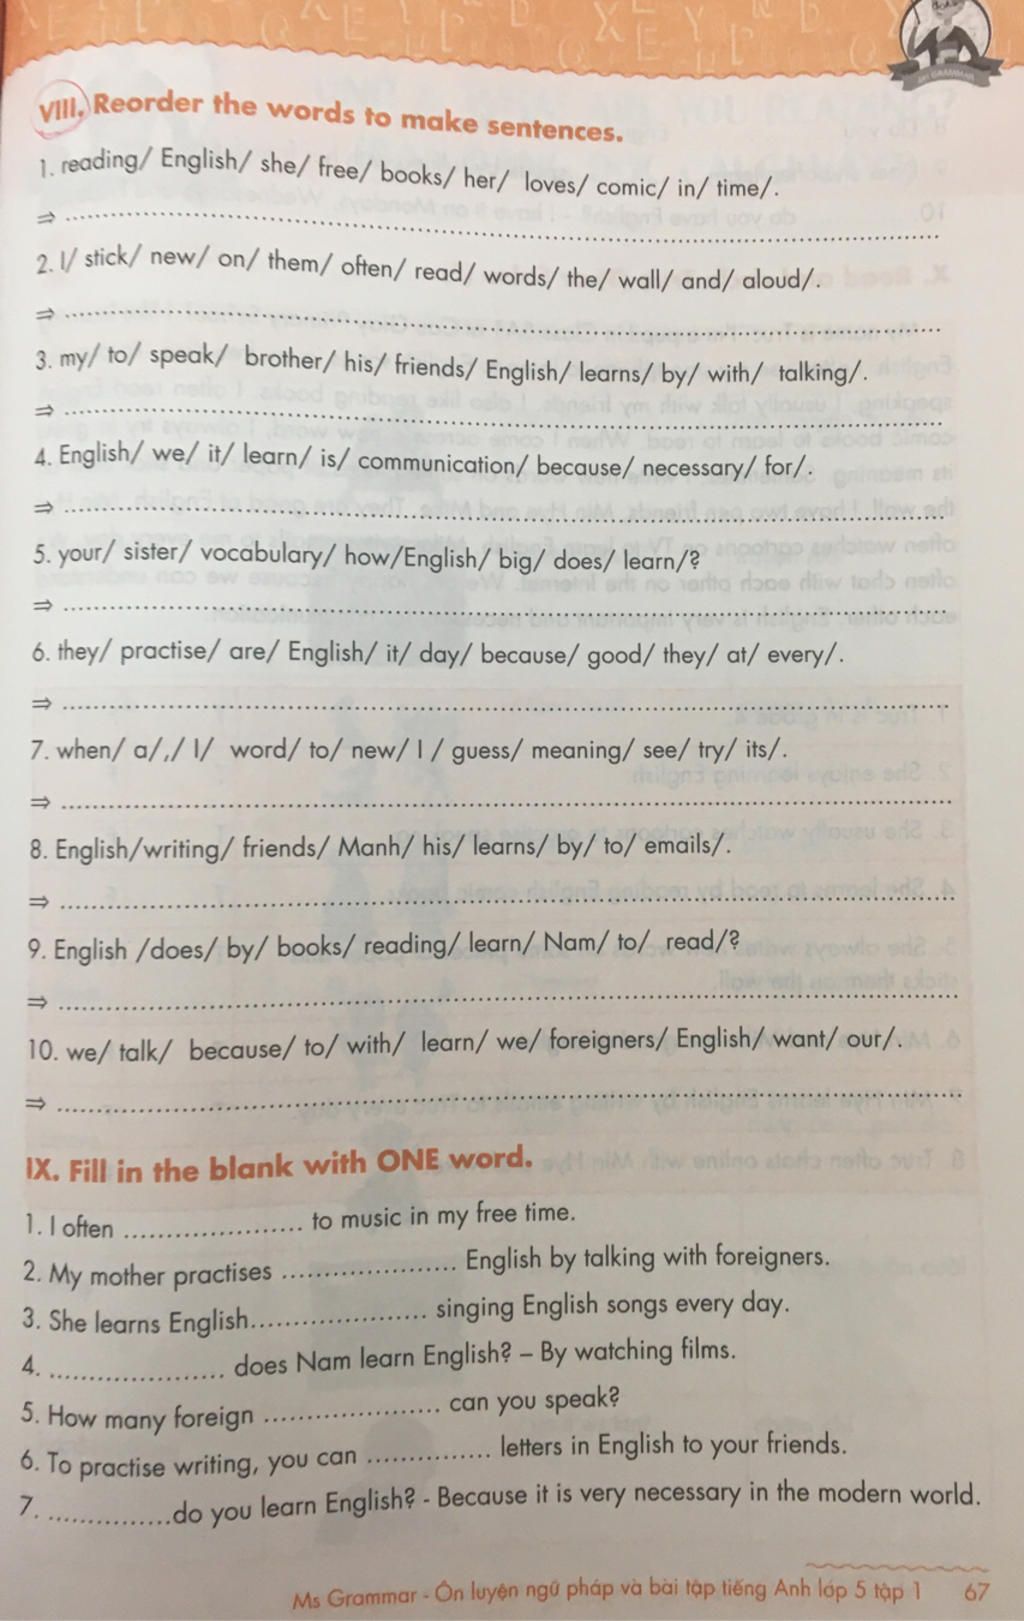 VIII. Reorder the words to make sentences.
1. reading/ English/ she/ free/ books/ her/ loves/ comic/ in/ time/.
⇒
2. I/ stick/ new/ on/ them/ often/ read/ words/ the/ wall/ and/ aloud/.
⇒
3. my/ to/ speak/ brother/ his/ friends/ English/ learns/ by/ with/ talking/.
⇒
4. English/ we/ it/ learn/ is/ communication/ because/ necessary/ for/.
⇒
5. your/ sister/ vocabulary/ how/English/ big/ does/ learn/?
⇒
6. they/ practise/ are/ English/ it/ day/ because/ good/ they/ at/ every/.
⇒
7. when/ a/,/ I/ word/ to/ new/ I / guess/ meaning/ see/ try/ its/.
⇒
8. English/writing/ friends/ Manh/ his/ learns/ by/ to/ emails/.
⇒
9. English /does/ by/ books/ reading/ learn/ Nam/ to/ read/?
⇒
10. we/ talk/ because/ to/ with/ learn/ we/ foreigners/ English/ want/ our/.
⇒
IX. Fill in the blank with ONE word.
1. I often ...................... to music in my free time.
2. My mother practises ..................... English by talking with foreigners.
3. She learns English..................... singing English songs every day.
4. ..................... does Nam learn English? – By watching films.
5. How many foreign ..................... can you speak?
6. To practise writing, you can ............... letters in English to your friends.
7. ...............do you learn English? - Because it is very necessary in the modern world.
Ms Grammar - Ôn luyện ngữ pháp và bài tập tiếng Anh lớp 5 tập 1 67